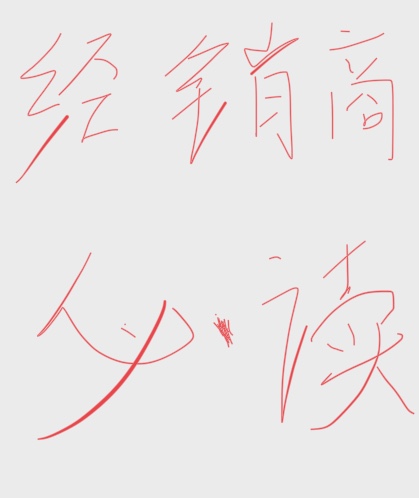 经销商
必读